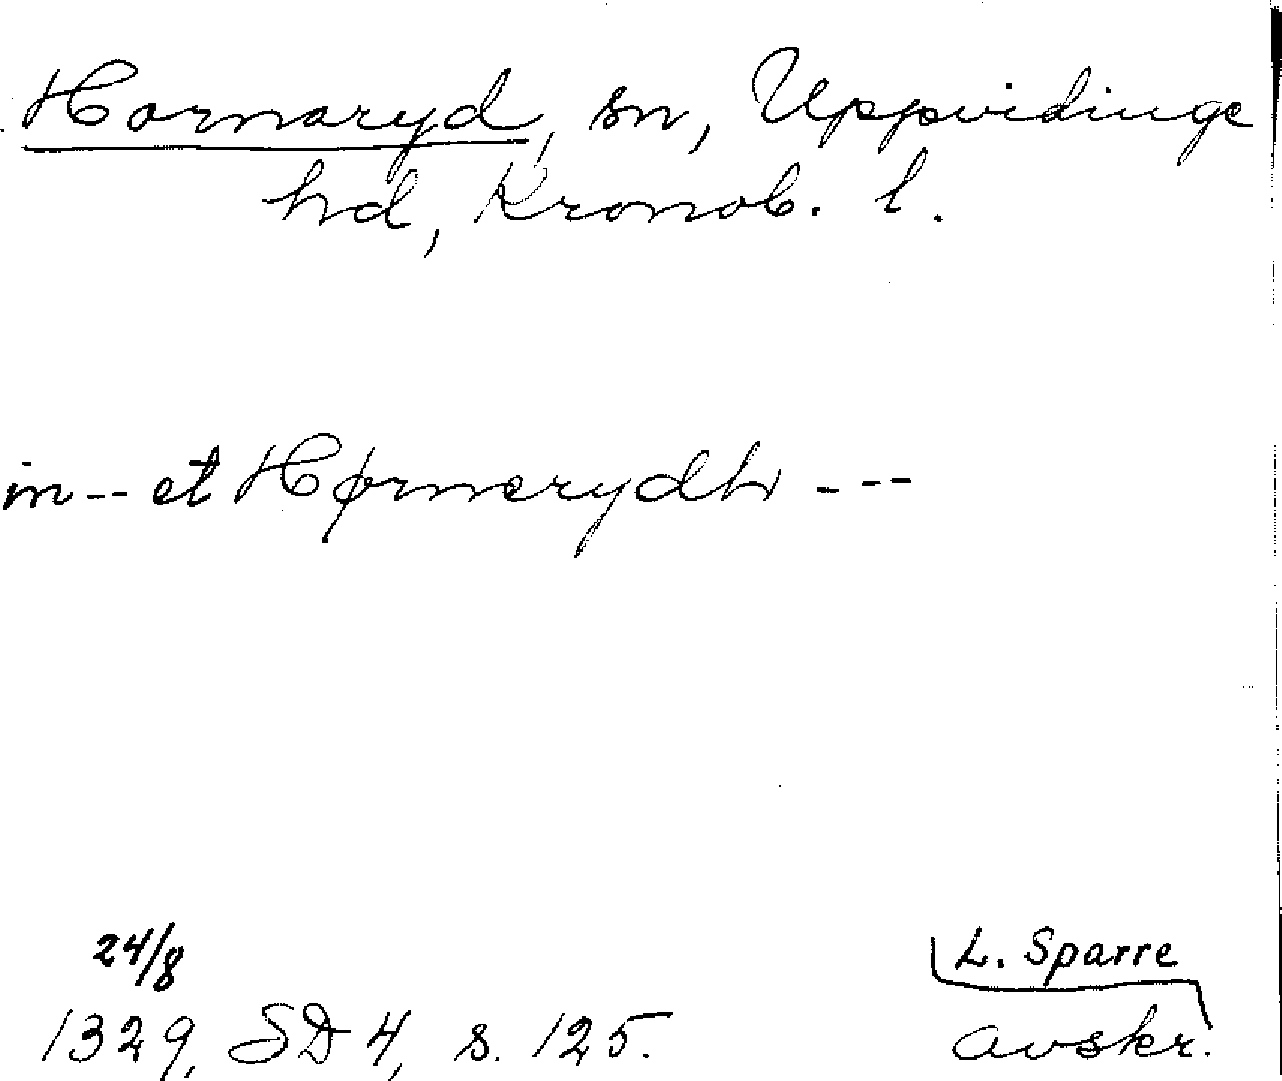 Hornaryd, sn, Uppvidinge
hd, Kronob. l.
in -- et Hørnerydh ---
24/8
L. Sparre
1329, SD 4, s. 125.
avskr.